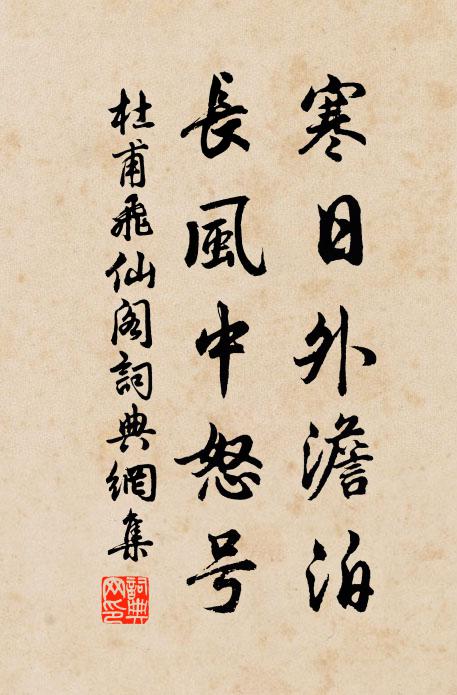 寒日外澹泊
長風中怒号
杜甫飛仙閣詞典網集
詞典網印